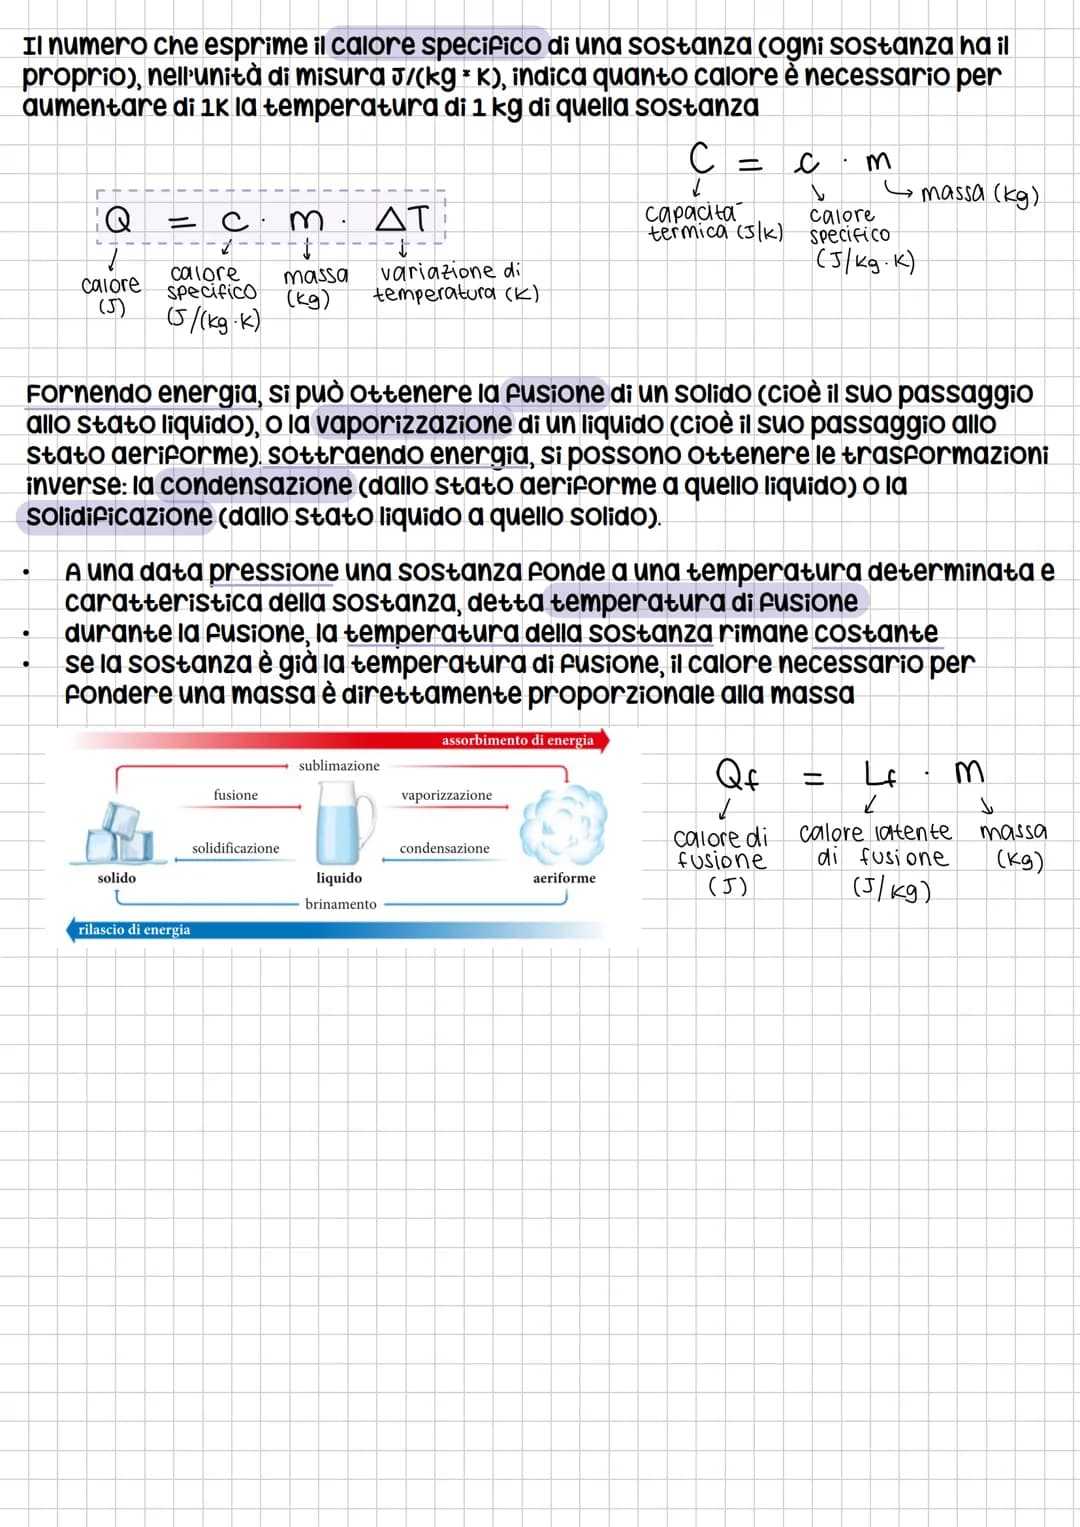 Il numero che esprime il calore specifico di una sostanza (ogni sostanza ha il
proprio), nell'unità di misura J/(kg * K), indica quanto calore è necessario per
aumentare di 1K la temperatura di 1 kg di quella sostanza
C = c · m
massa (kg)
capacità termica (J/K)
calore specifico (J/kg·K)
Q = c · m · ΔT
calore (J)
calore specifico (J/(kg·K)
massa (kg)
variazione di temperatura (K)
Fornendo energia, si può ottenere la fusione di un solido (cioè il suo passaggio
allo stato liquido), o la vaporizzazione di un liquido (cioè il suo passaggio allo
stato aeriforme). sottraendo energia, si possono ottenere le trasformazioni
inverse: la condensazione (dallo stato aeriforme a quello liquido) o la
solidificazione (dallo stato liquido a quello solido).
• A una data pressione una sostanza fonde a una temperatura determinata e
caratteristica della sostanza, detta temperatura di fusione
• durante la fusione, la temperatura della sostanza rimane costante
• se la sostanza è già la temperatura di fusione, il calore necessario per
fondere una massa è direttamente proporzionale alla massa
assorbimento di energia
sublimazione
fusione
vaporizzazione
solidificazione
condensazione
solido
liquido
aeriforme
brinamento
rilascio di energia
Qf = Lf · m
calore di fusione (J)
calore latente di fusione (J/kg)
massa (kg)